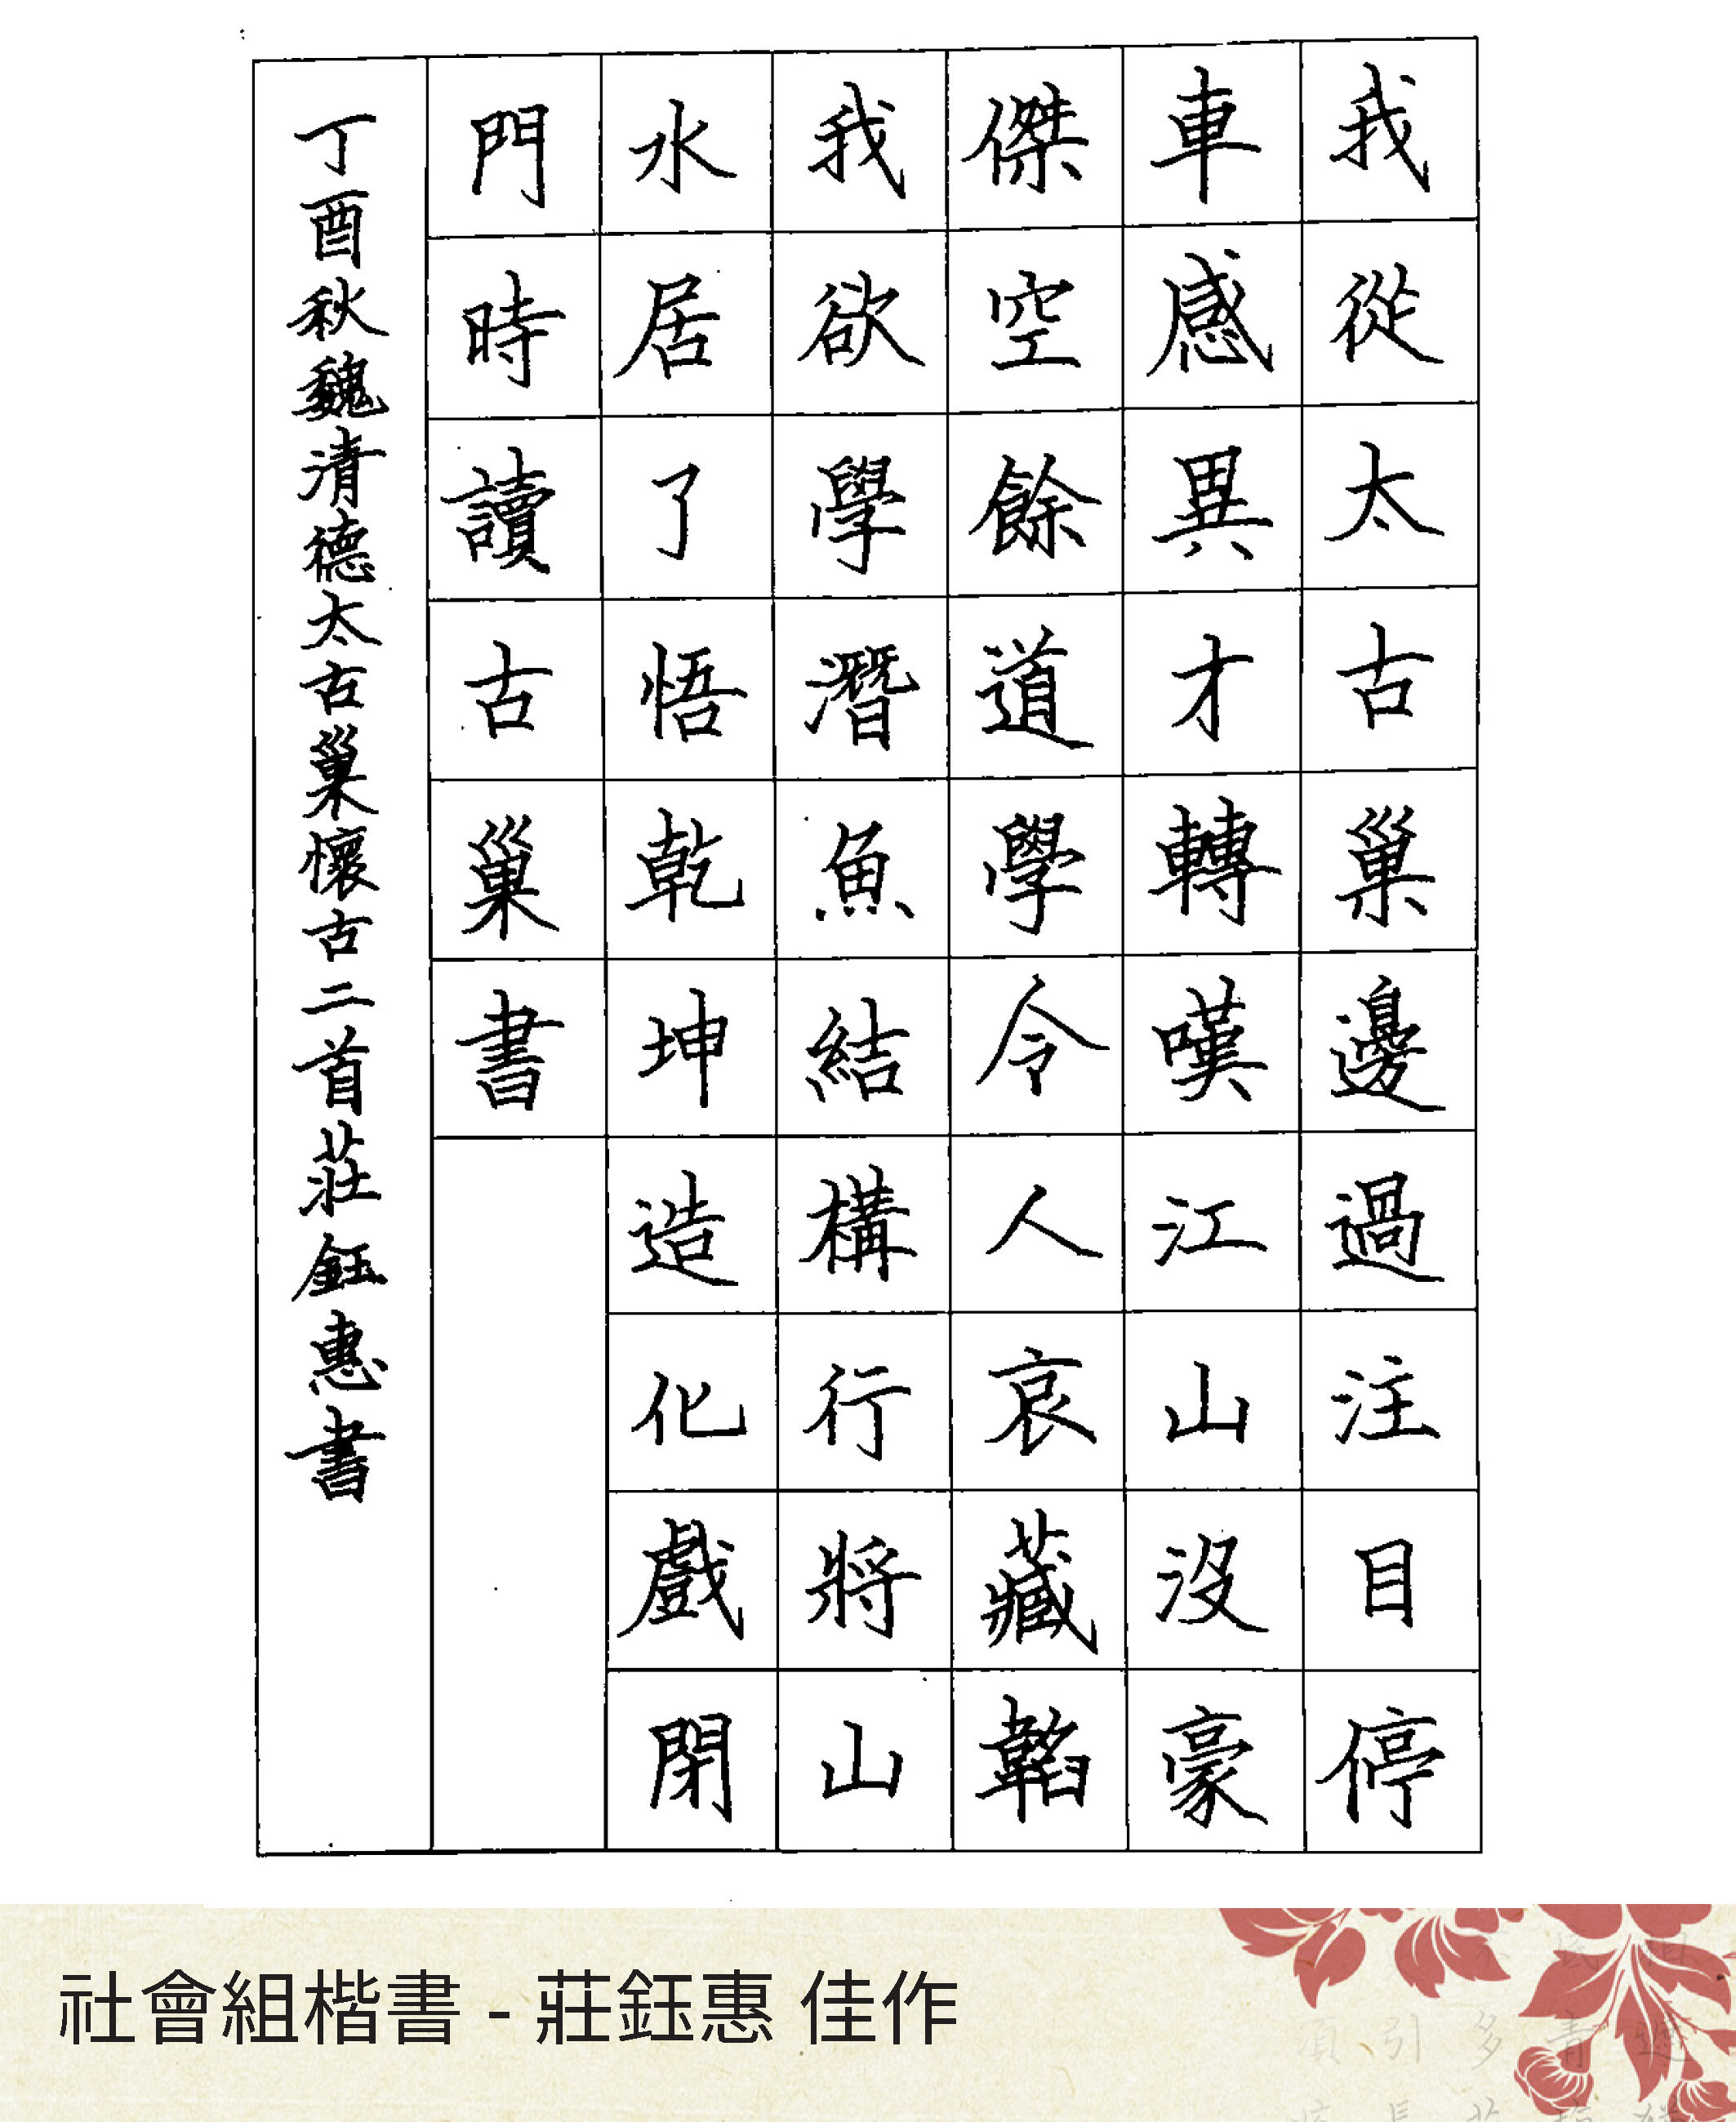 我從太古巢邊過注目停
車感異才轉嘆江山沒豪
傑空餘道學令人哀藏韜
我欲學潛魚結構行將山
水居了悟乾坤造化戲閉
門時讀古巢書
丁酉秋魏清德太古巢懷古二首莊鈺惠書
社會組楷書 - 莊鈺惠 佳作